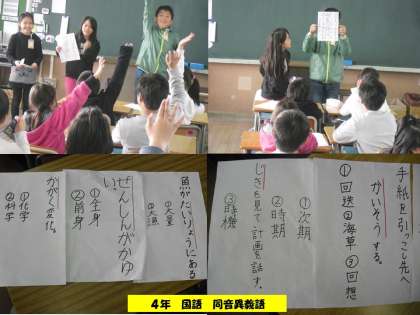 魚がたいりょうにある
①大量
②大漁
ぜんしんがかゆい
①全身
②前身
かがく変化。
①化学
②科学
手紙を引っこし先へ
かいそうする。
①回送②海草③回想
じきを見て計画を話す。
①次期
②時期
③時機
4年 国語 同音異義語